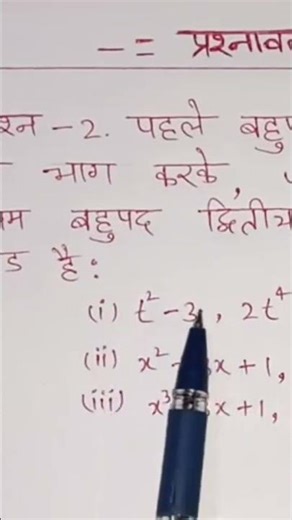 -= प्रश्नाव
श्न - 2. पहले बहुप
भाग करके,
म बहुपद द्वितीय
ड है:
(i) t² - 3, 2t⁴
(ii) x² - 3x + 1,
(iii) x³ - 3x + 1,